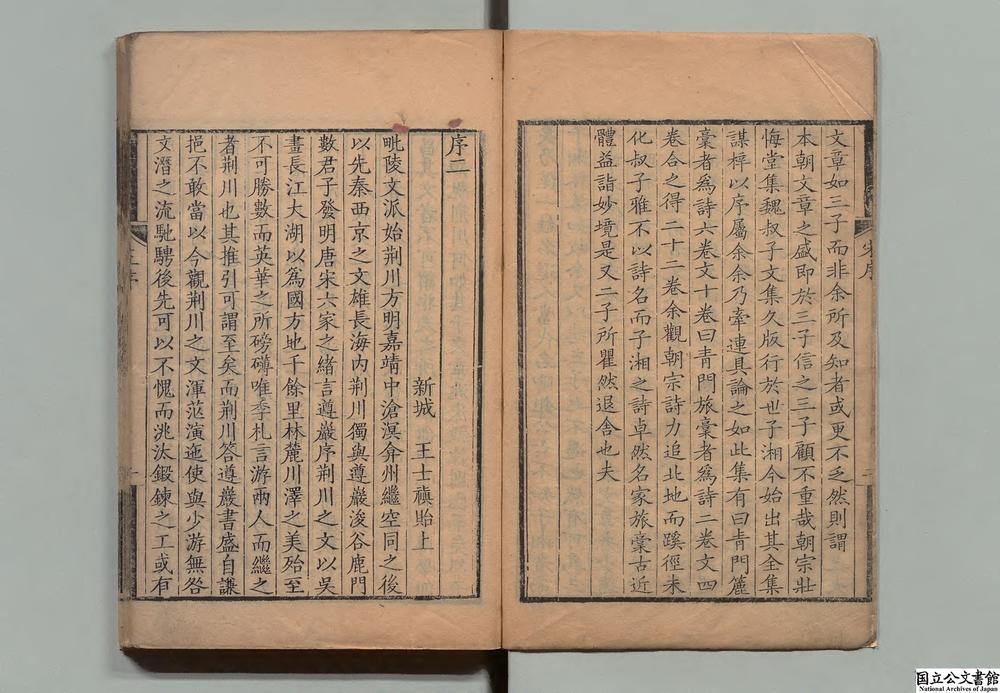 文章如三子而非余所及知者或更不乏然則謂
本朝文章之盛即於三子信之三子顧不重哉朝宗壯
悔堂集魏叔子文集久版行於世子湘今始出其全集
謀梓以序屬余余乃牽連具論之如此集有曰青門簏
稾者爲詩六卷文十卷曰青門旅稾者爲詩二卷文四
卷合之得二十二卷余觀朝宗詩力追北地而蹊徑未
化叔子雅不以詩名而子湘之詩卓然名家旅稾古近
體益詣妙境是又二子所瞿然退舍也夫
宋序
序二
新城 王士禛貽上
毗陵文派始荆川方明嘉靖中滄溟弇州繼空同之後
以先秦西京之文雄長海内荆川獨與遵巖浚谷鹿門
數君子發明唐宋六家之緒言遵巖序荆川之文以吳
畫長江大湖以爲國方地千餘里林麓川澤之美殆至
不可勝數而英華之所磅礴唯季札言游兩人而繼之
者荆川也其推引可謂至矣而荆川答遵巖書盛自謙
挹不敢當以今觀荆川之文渾范演迤使與少游無咎
文潛之流馳騁後先可以不愧而洮汰鍛鍊之工或有
国立公文書館
National Archives of Japan